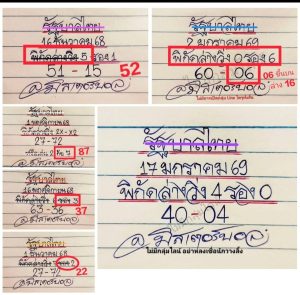 รัฐบาลไทย
16 ธันวาคม 68
พิกัดล่างวิ่ง 5 รอง 1
51 - 15
52
รัฐบาลไทย
2 มกราคม 69
พิกัดล่างวิ่ง 0 รอง 6
60 - 06
06 ขึ้นบน
ล่าง 16
รัฐบาลไทย
1 พฤศจิกายน 68
พิกัดล่างวิ่ง 2X - X2
27-72
87
รัฐบาลไทย
16 พฤศจิกายน 68
63-36
37
รัฐบาลไทย
1 ธันวาคม 68
27-72
22
รัฐบาลไทย
17 มกราคม 69
พิกัดล่างวิ่ง 4 รอง 0
40 - 04
ไม่มีกลุ่มไลน์ อย่าหลงเชื่อมิจฉาชีพ